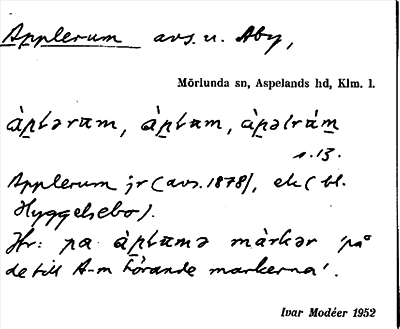 Applerum avs. u. Aby,
Mörlunda sn, Aspelands hd, Klm. l.
àpləru̅m, àplu̅m, àpəlrúm
s. 13.
Applerum jr (avs. 1878), ek (bl.
Hyggelsebo).
Hr: pa àplu̅mə màrkər 'på
de till A-m hörande markerna'.
Ivar Modéer 1952